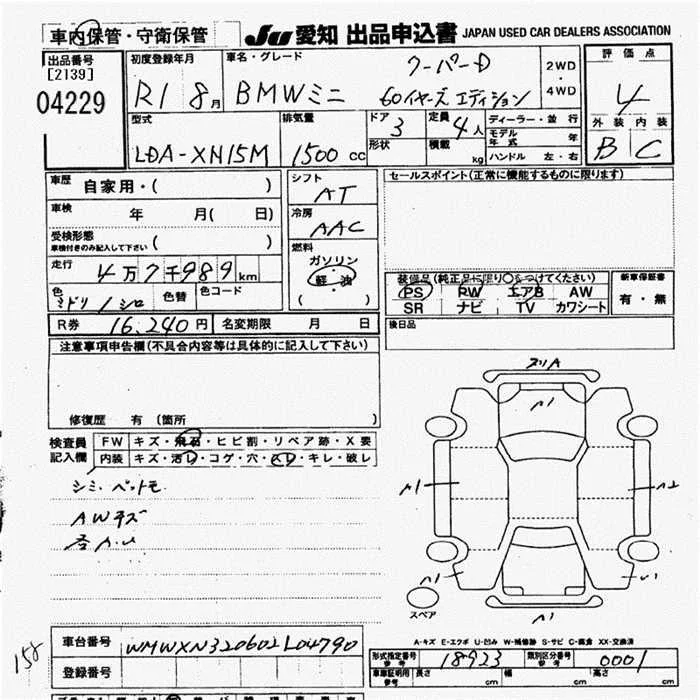 車内保管・守衛保管 JU 愛知 出品申込書 JAPAN USED CAR DEALERS ASSOCIATION
出品番号 [2139] 04229
初度登録年月 R1 8月
車名・グレード クーパーD
BMWミニ 60イヤーズエディション
2WD・4WD
評価点 4
外装 内装
B C
型式 LDA-XN15M
排気量 1500cc
ドア 3
形状
定員 4人
積載 kg
ディーラー・並行
モデル年式 年
ハンドル 左・右
車歴 自家用・( )
シフト AT
セールスポイント(正常に機能するものに限ります)
車検 年 月( 日)
冷房 AAC
受検形態
車検付きのみ記入して下さい ( )
燃料 ガソリン
軽油
( )
走行 4万7千989km
色 ミドリ/シロ 色替 色コード
装備品(純正品に限り○をつけてください)
PS PW エアB AW
SR ナビ TV カワシート
新車保証書 有・無
R券 16,240円 名変期限 月 日
後日品
注意事項申告欄(不具合内容等は具体的に記入して下さい)
修復歴 有 (箇所 )
検査員記入欄
FW キズ・飛石・ヒビ割・リペア跡・X要
内装 キズ・汚レ・コゲ・穴・スレ・キレ・破レ
シミ.ペットモ
AWキズ
各A.U
スリA
A1
A1
A2
A1
A1
スペア
A-キズ E-エクボ U-凹み W-補修跡 S-サビ C-腐食 XX-交換済
158
車台番号 WMWXN320602L04790
登録番号
形式指定番号 参考 18923
類別区分番号 参考 0001
車庫証明用 参考 長さ cm 幅 cm 高さ cm